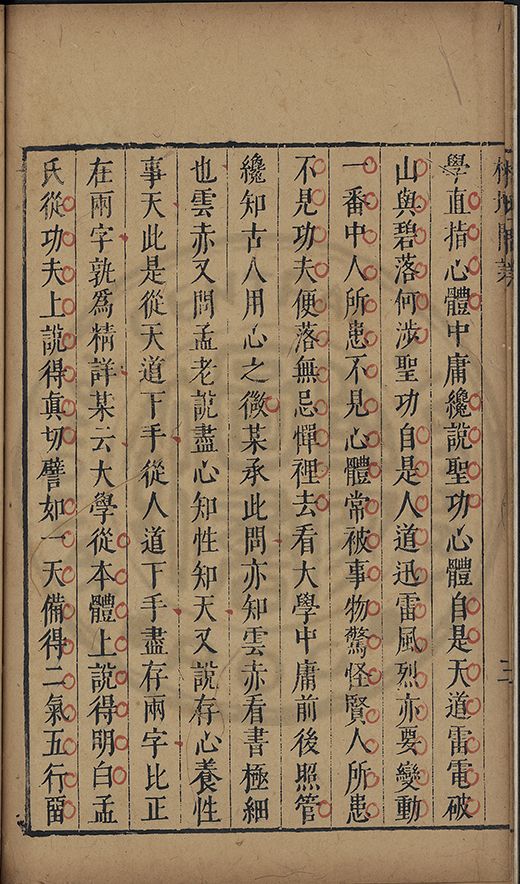 學直指心體中庸纔說聖功心體自是天道雷電破
山與碧落何涉聖功自是人道迅雷風烈亦要變動
一番中人所患不見心體常被事物驚怪賢人所患
不見功夫便落無忌憚裡去看大學中庸前後照管
纔知古人用心之微某承此問亦知雲赤看書極細
也雲赤又問孟老說盡心知性知天又說存心養性
事天此是從天道下手從人道下手盡存兩字比正
在兩字孰為精詳某云大學從本體上說得明白孟
氏從功夫上說得真切譬如一天備得二氣五行留